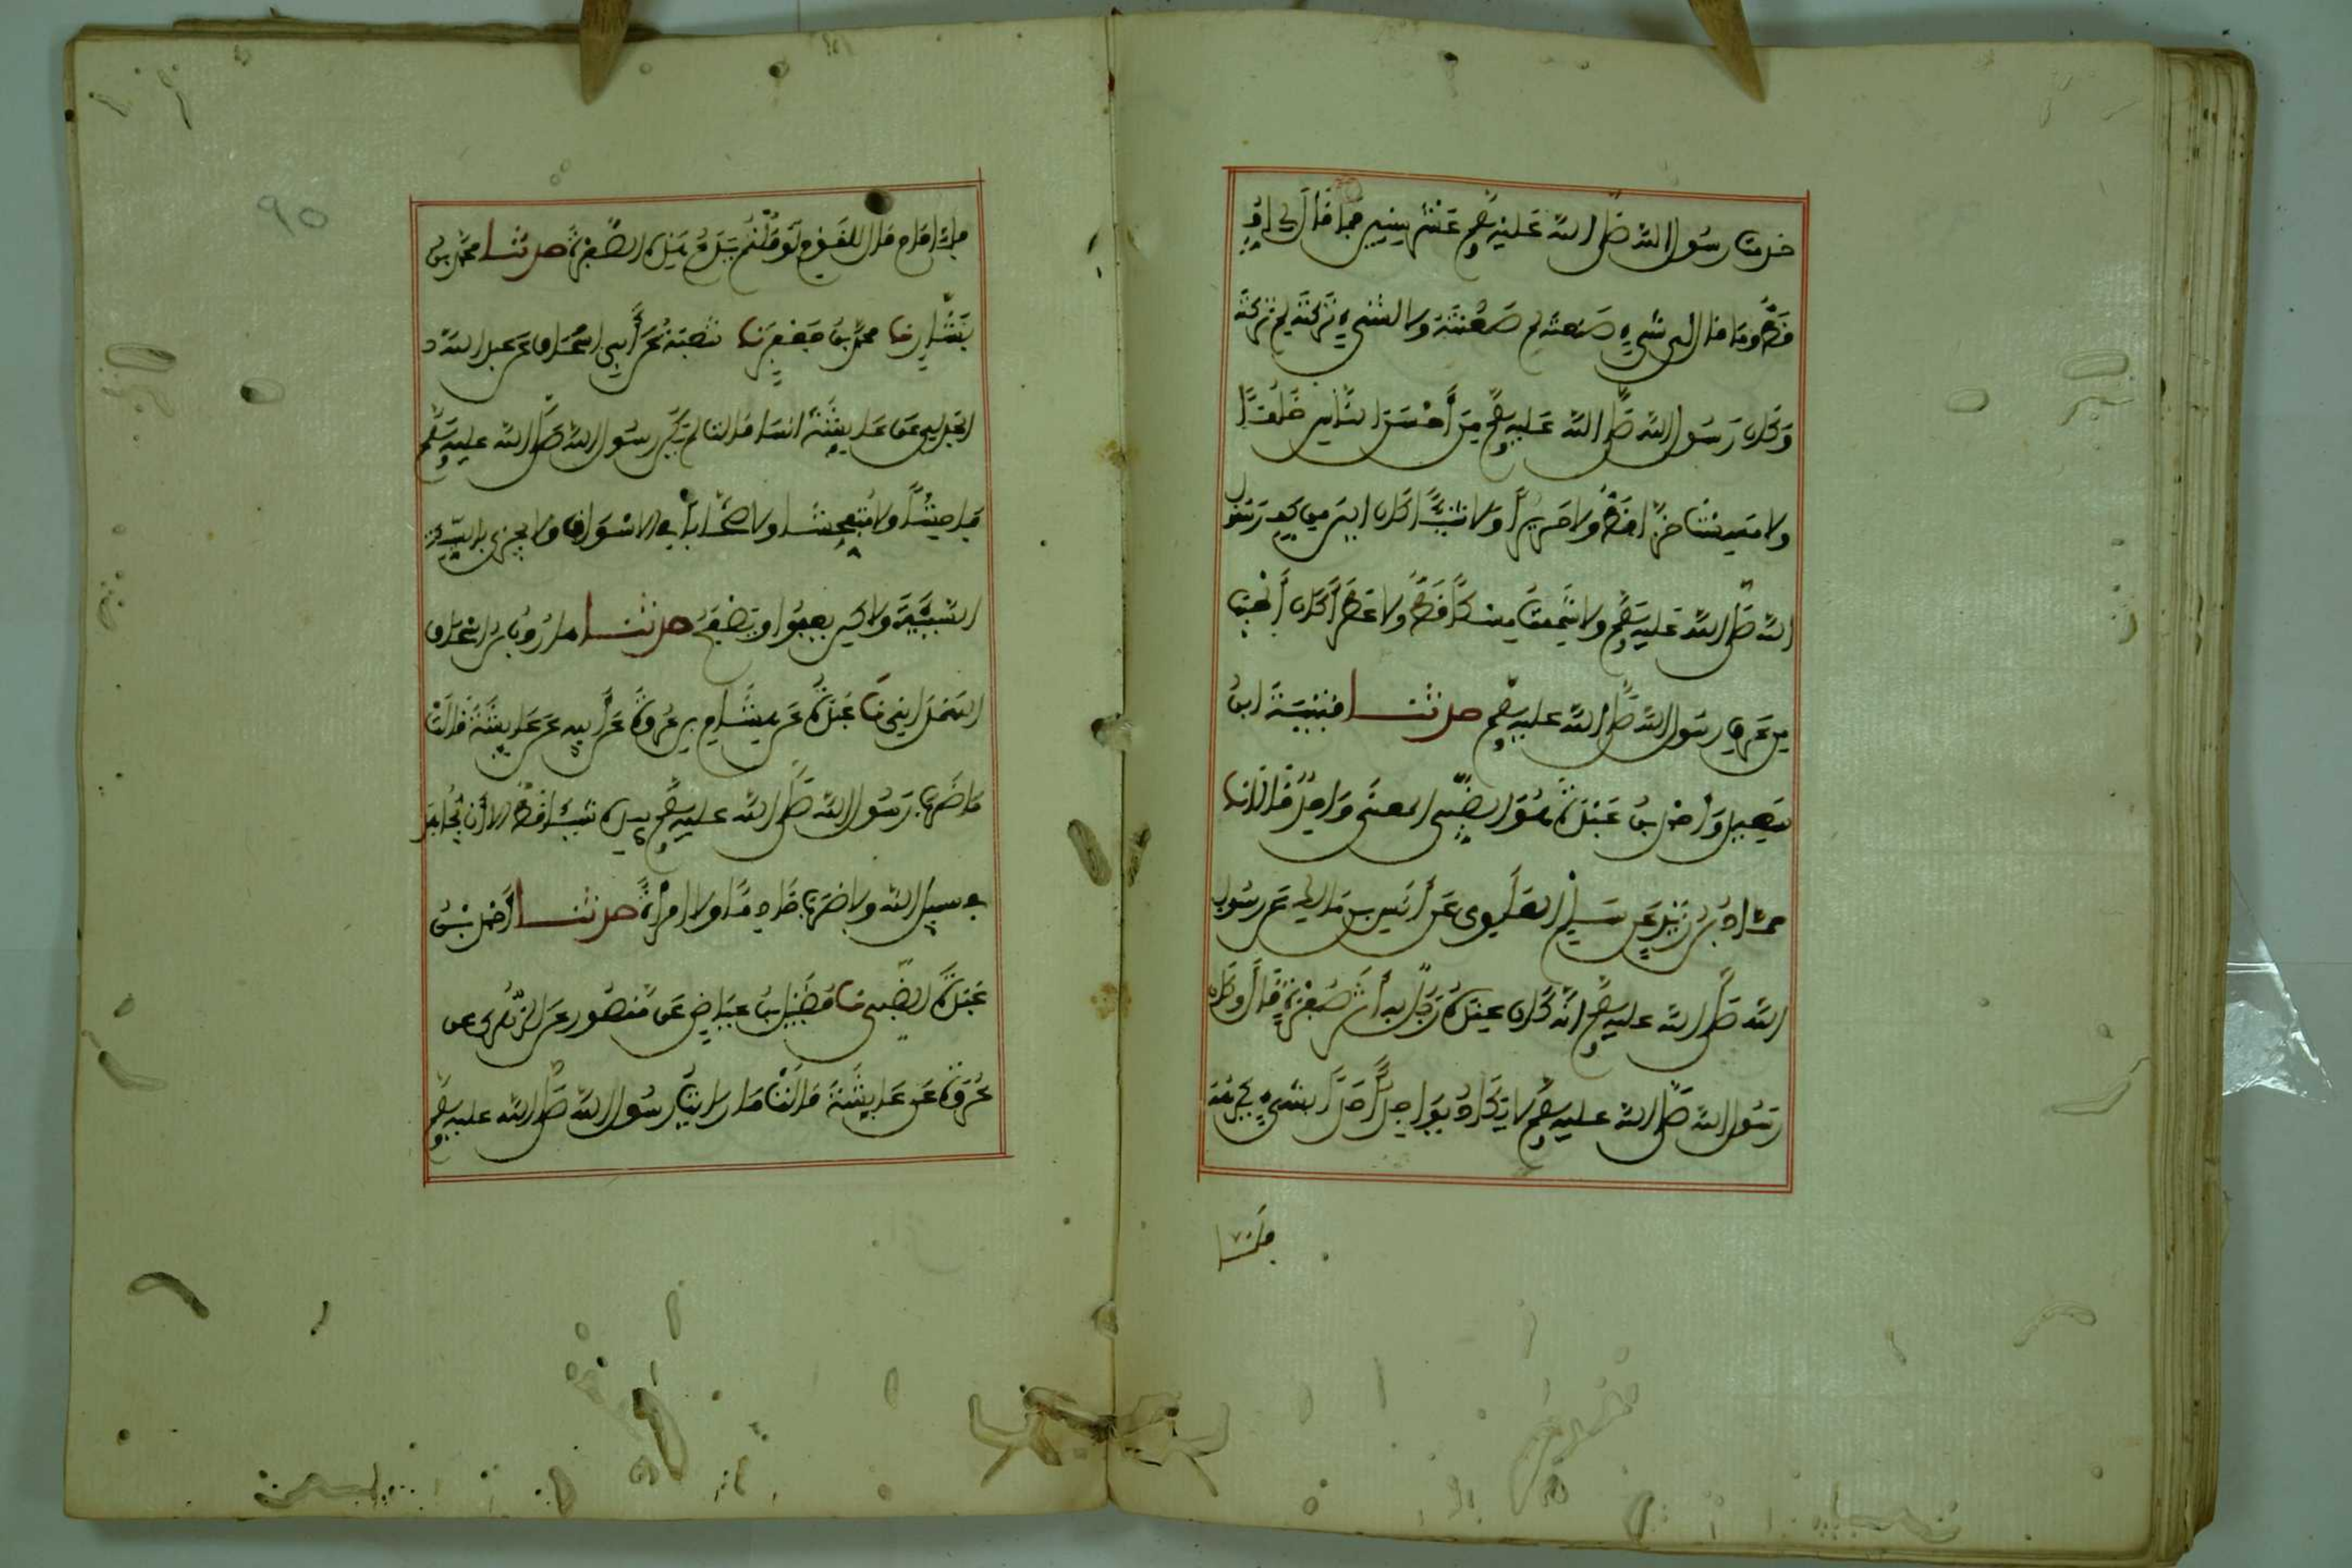 خدمت رسول الله صلى الله عليه وسلم عشر سنين فما قال لي اف
قط وما قال لي لشيء صنعته لم صنعته ولا لشيء تركته لم تركته
وكان رسول الله صلى الله عليه وسلم من أحسن الناس خلقا
ولا مسست خزا قط ولا حريرا ولا شيئا كان الين من كف رسول
الله صلى الله عليه وسلم ولا شممت مسكا قط ولا عطرا كان أطيب
من عرق رسول الله صلى الله عليه وسلم حدثنا قتيبة ابن
سعيد وأحمد بن عبدة هو الضبي المعنى واحد قالا نا
حماد بن زيد عن سلم العلوي عن أنس بن مالك عن رسول
الله صلى الله عليه وسلم انه كان عنده رجل به أثر صفرة قال وكان
رسول الله صلى الله عليه وسلم لا يكاد يواجه أحدا بشيء يكرهه
فلما
٩٥
فلما قام قال للقوم لو قلتم له يدع هذه الصفرة حدثنا محمد بن
بشار نا محمد بن جعفر نا شعبة عن أبي اسحاق عن عبد الله
الجدلي عن عايشة انها قالت لم يكن رسول الله صلى الله عليه وسلم
فاحشا ولا متفحشا ولا صخابا في الاسواق ولا يجزي بالسيئة
السيئة ولكن يعفوا ويصفح حدثنا هارون بن اسحاق
الهمداني نا عبدة عن هشام بن عروة عن أبيه عن عايشة قالت
ما ضرب رسول الله صلى الله عليه وسلم بيده شيئا قط الا أن يجاهد
في سبيل الله ولا ضرب خادما ولا امرأة حدثنا أحمد بن
عبدة الضبي نا فضيل بن عياض عن منصور عن الزهري عن
عروة عن عايشة قالت ما رايت رسول الله صلى الله عليه وسلم